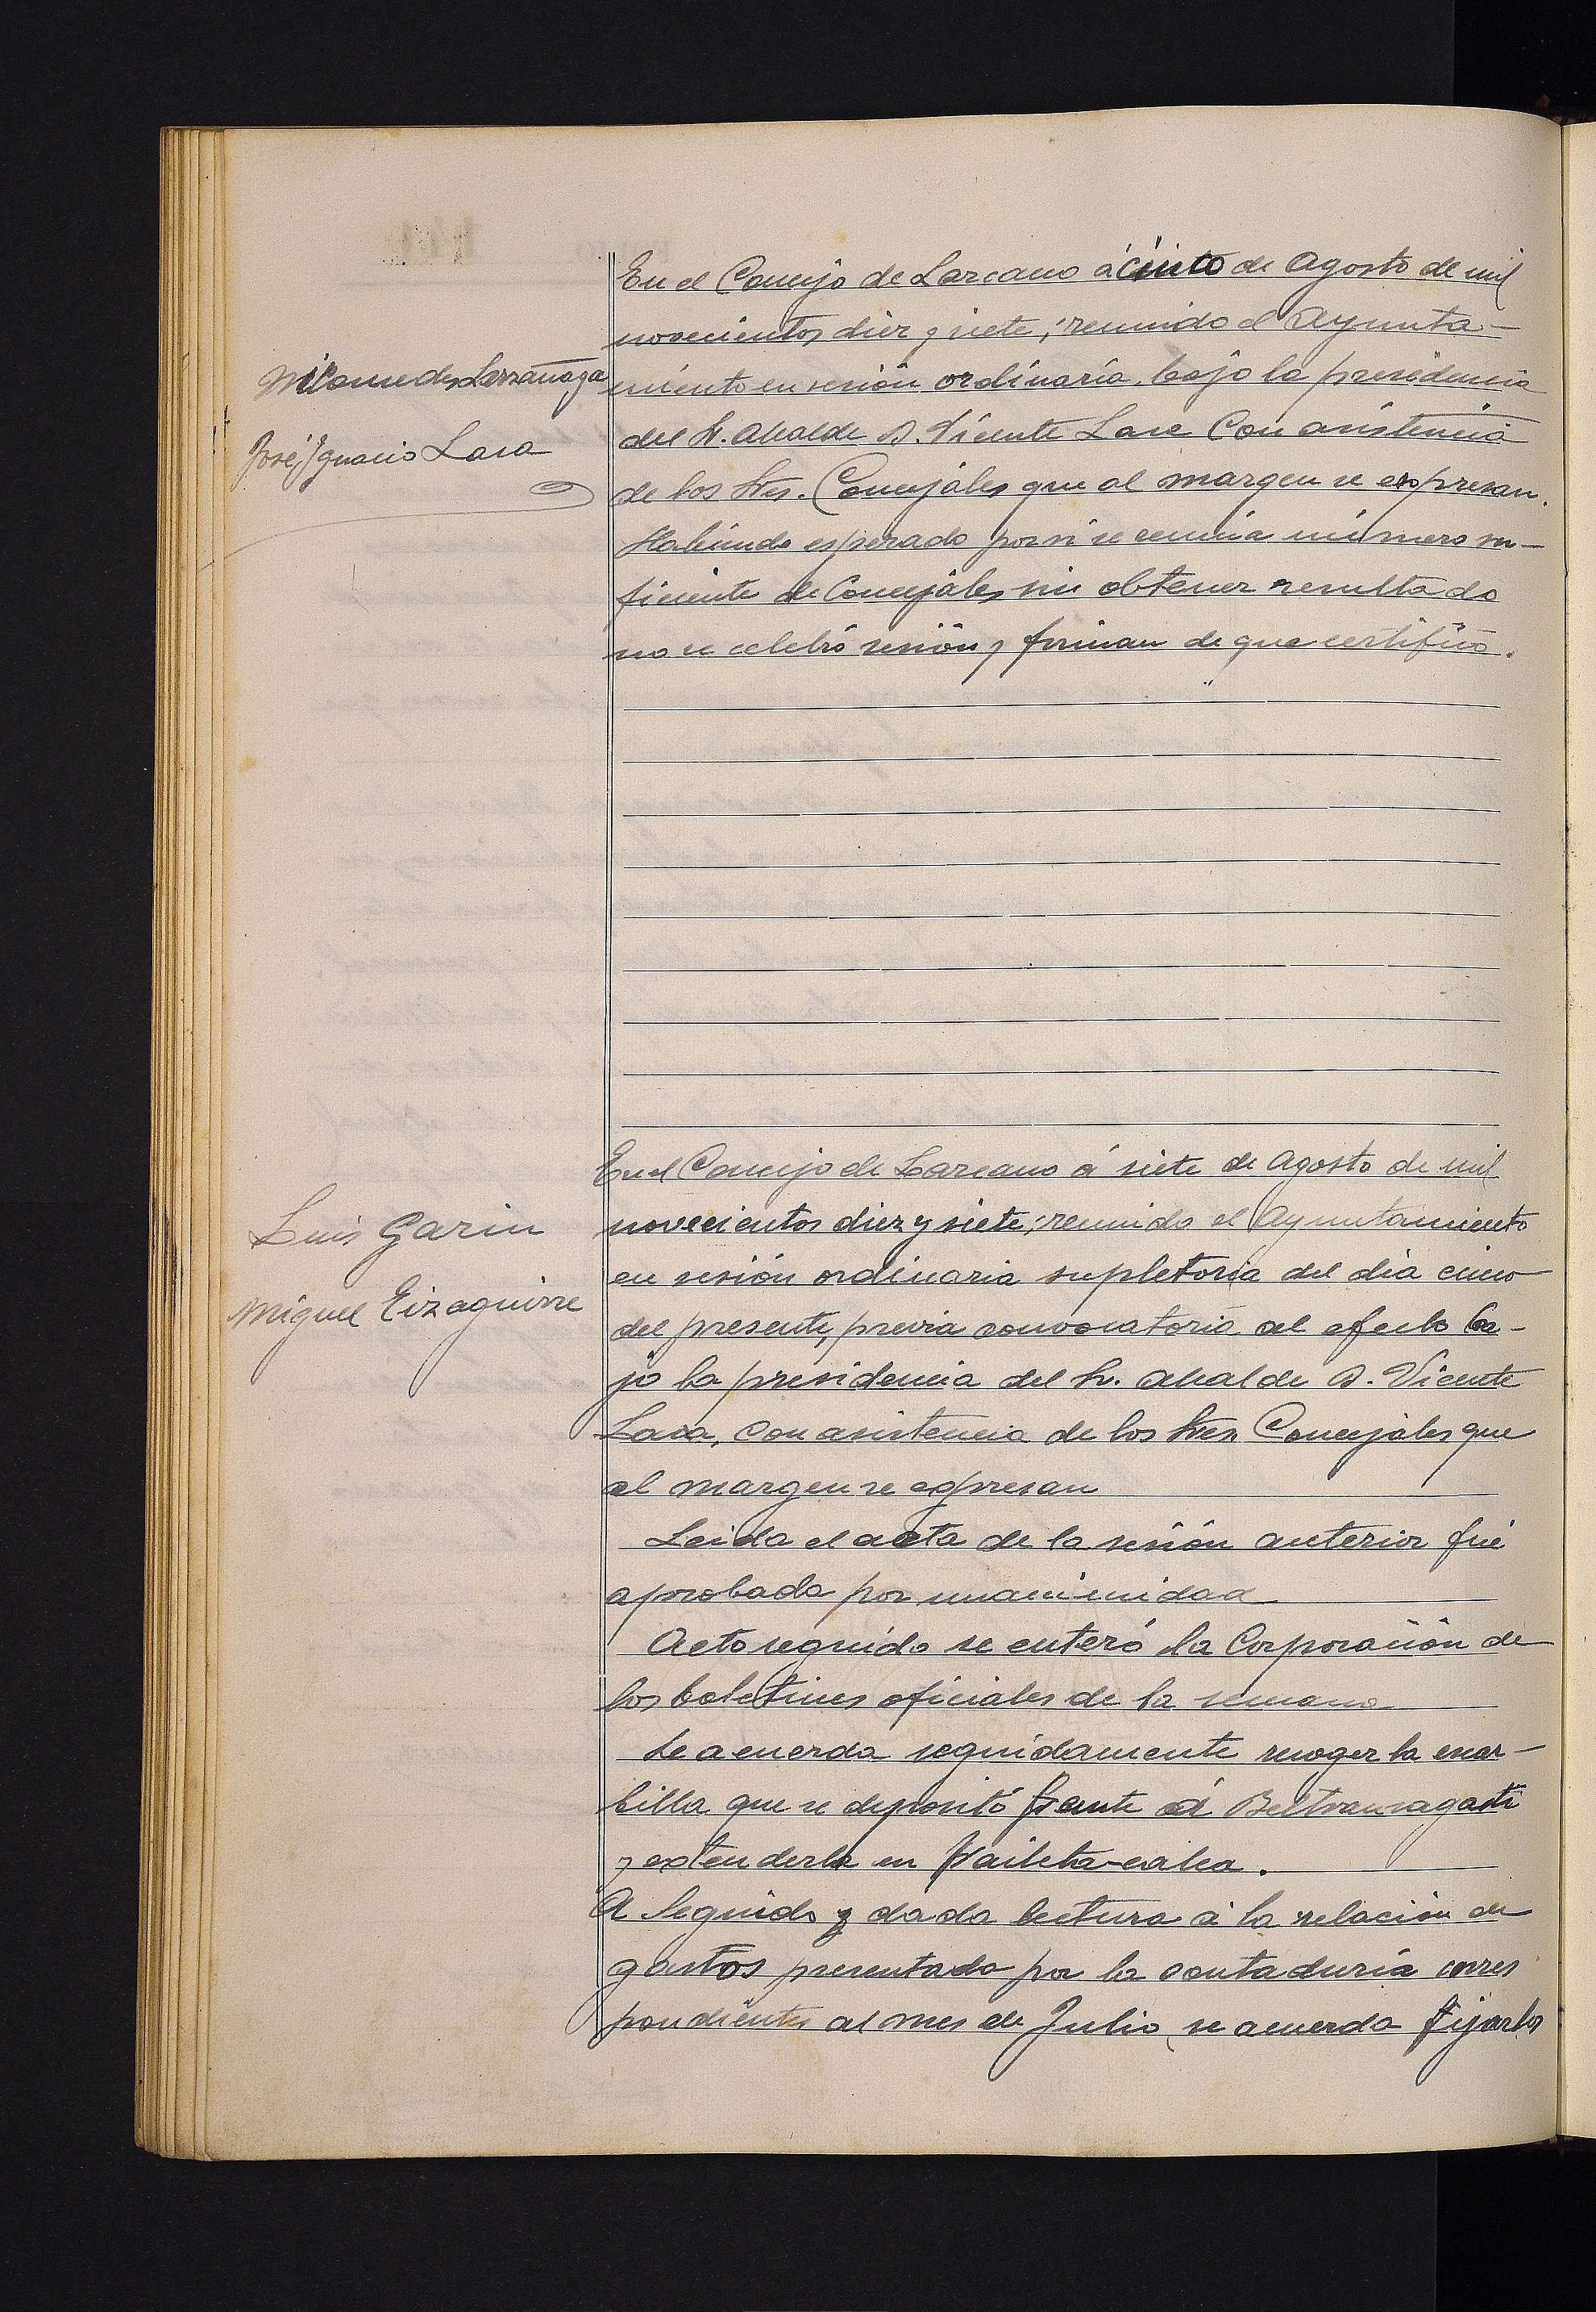 En el Concejo de Lazcano á cinco de Agosto de mil
novecientos diez y siete; reunido el Ayunta-
miento en sesión ordinaria, bajo la presidencia
del Sr. Alcalde D. Vicente Lasa Con asistencia
de los Sres. Concejáles que al margen se expresan.
Habiendo esperado por si se reunia número su-
ficiente de Concejáles sin obtener resultado
no se celebró sesión y firman de que certifico.
Larrañaga
José Ignacio Lasa
En el Concejo de Lazcano á siete de Agosto de mil
novecientos diez y siete; reunido el Ayuntamiento
en sesión ordinaria supletoria del día cinco
del presente, previa convocatoria al efecto ba-
jo la presidencia del Sr. Alcalde D. Vicente
Lasa, con asistencia de los Sres. Concejáles que
al margen se expresan
Luis Garin
Miguel Eizaguirre
Leida el acta de la sesión anterior fué
aprobada por unanimidad
Acto seguido se enteró la Corporación de
los boletines oficiales de la semana
Se acuerda seguidamente recoger la escar-
billa que se depositó frente á Beltransagasti
y extenderla en
A seguido y dada lectura á la relación de
gastos presentada por la contaduría corres
pondientes al mes de Julio, se acuerda fijarlos